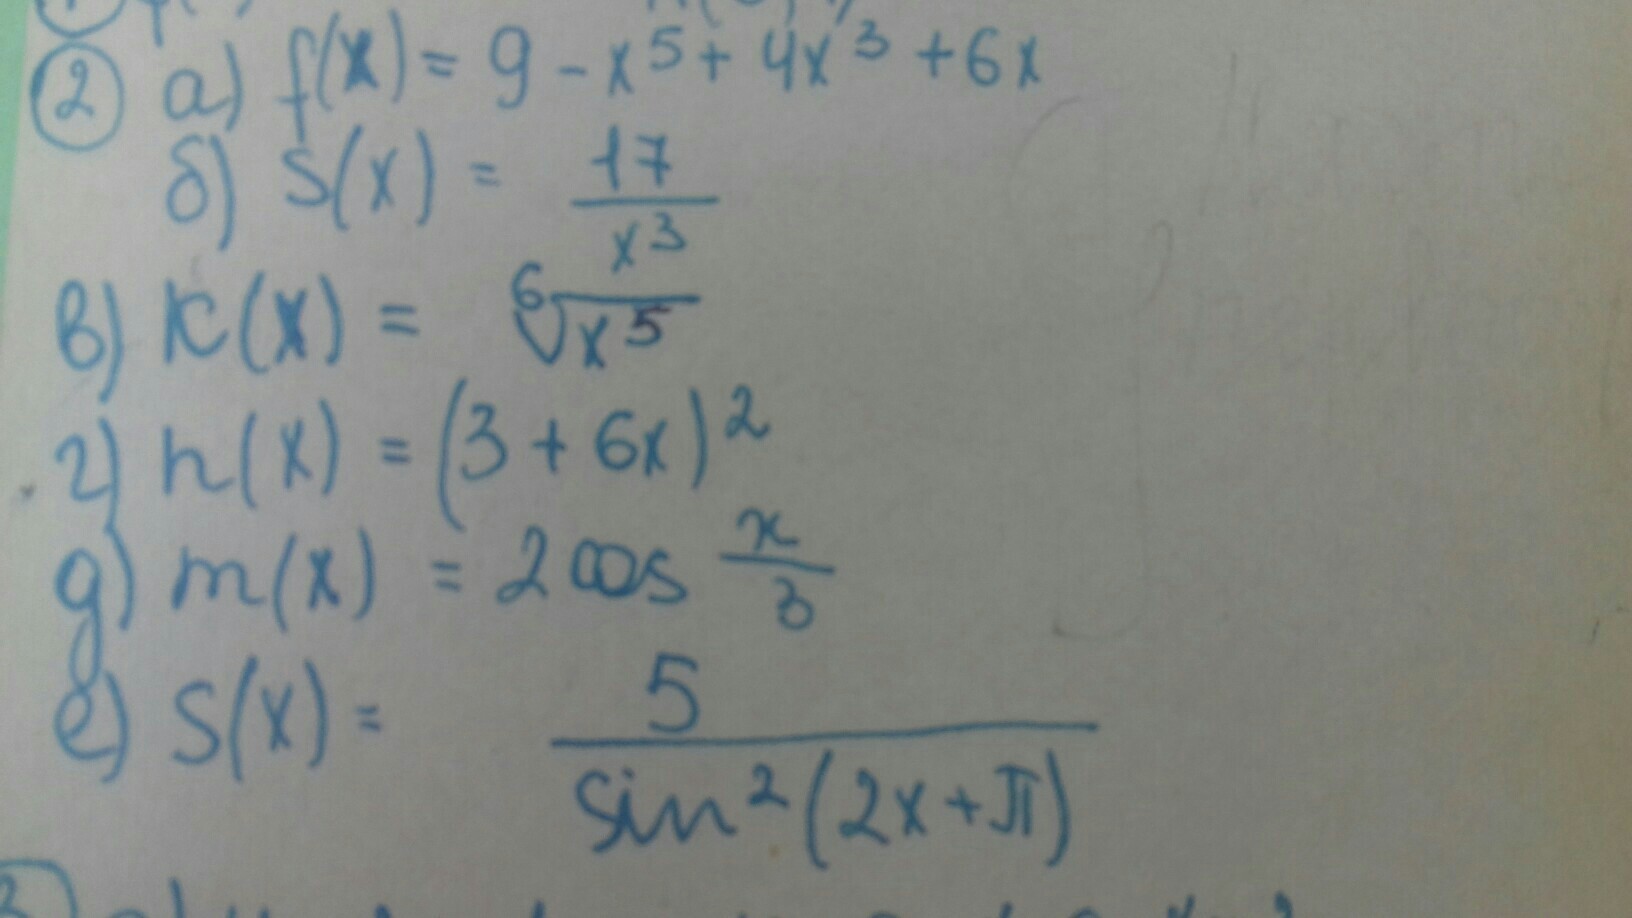 ② а) f(x) = 9 - x⁵ + 4x³ + 6x
б) S(x) = 17/x³
в) K(x) = ⁶√x⁵
г) h(x) = (3 + 6x)²
д) m(x) = 2 cos x/3
е) S(x) = 5/sin²(2x+π)